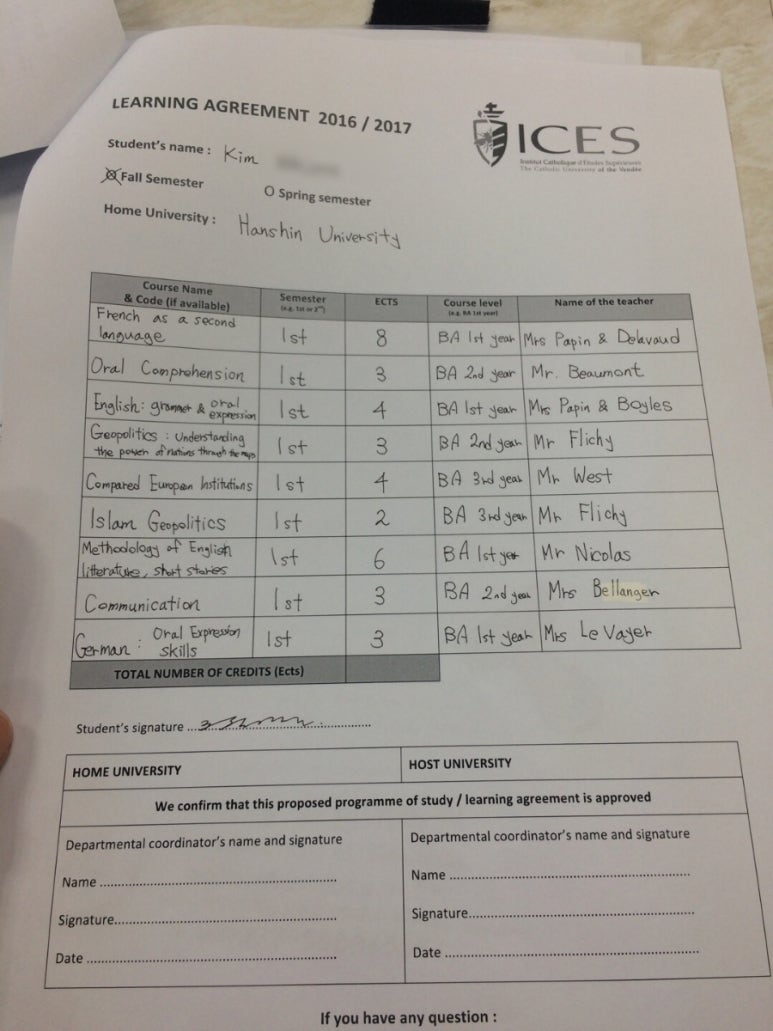 LEARNING AGREEMENT 2016 / 2017
ICES
Institut Catholique d'Etudes Supérieures
The Catholic University of the Vendée
Student's name : Kim
Fall Semester
O Spring semester
Home University : Hanshin University
Course Name & Code (if available) Semester (e.g. 1st or 2nd) ECTS Course level (e.g. BA 1st year) Name of the teacher
French as a second language 1st 8 BA 1st year Mrs Papin & Delavaud
Oral Comprehension 1st 3 BA 2nd year Mr. Beaumont
English: grammer & oral expression 1st 4 BA 1st year Mrs Papin & Boyles
Geopolitics : Understanding the power of nations through the maps 1st 3 BA 2nd year Mr Flichy
Compared European Institutions 1st 4 BA 3rd year Mr West
Islam Geopolitics 1st 2 BA 3rd year Mr Flichy
Methodology of English litterature, short stories 1st 6 BA 1st year Mr Nicolas
Communication 1st 3 BA 2nd year Mrs Bellanger
German : Oral Expression skills 1st 3 BA 1st year Mrs Le Vayer
TOTAL NUMBER OF CREDITS (Ects)
Student's signature
HOME UNIVERSITY HOST UNIVERSITY
We confirm that this proposed programme of study / learning agreement is approved
Departmental coordinator's name and signature Departmental coordinator's name and signature
Name Name
Signature Signature
Date Date
If you have any question :